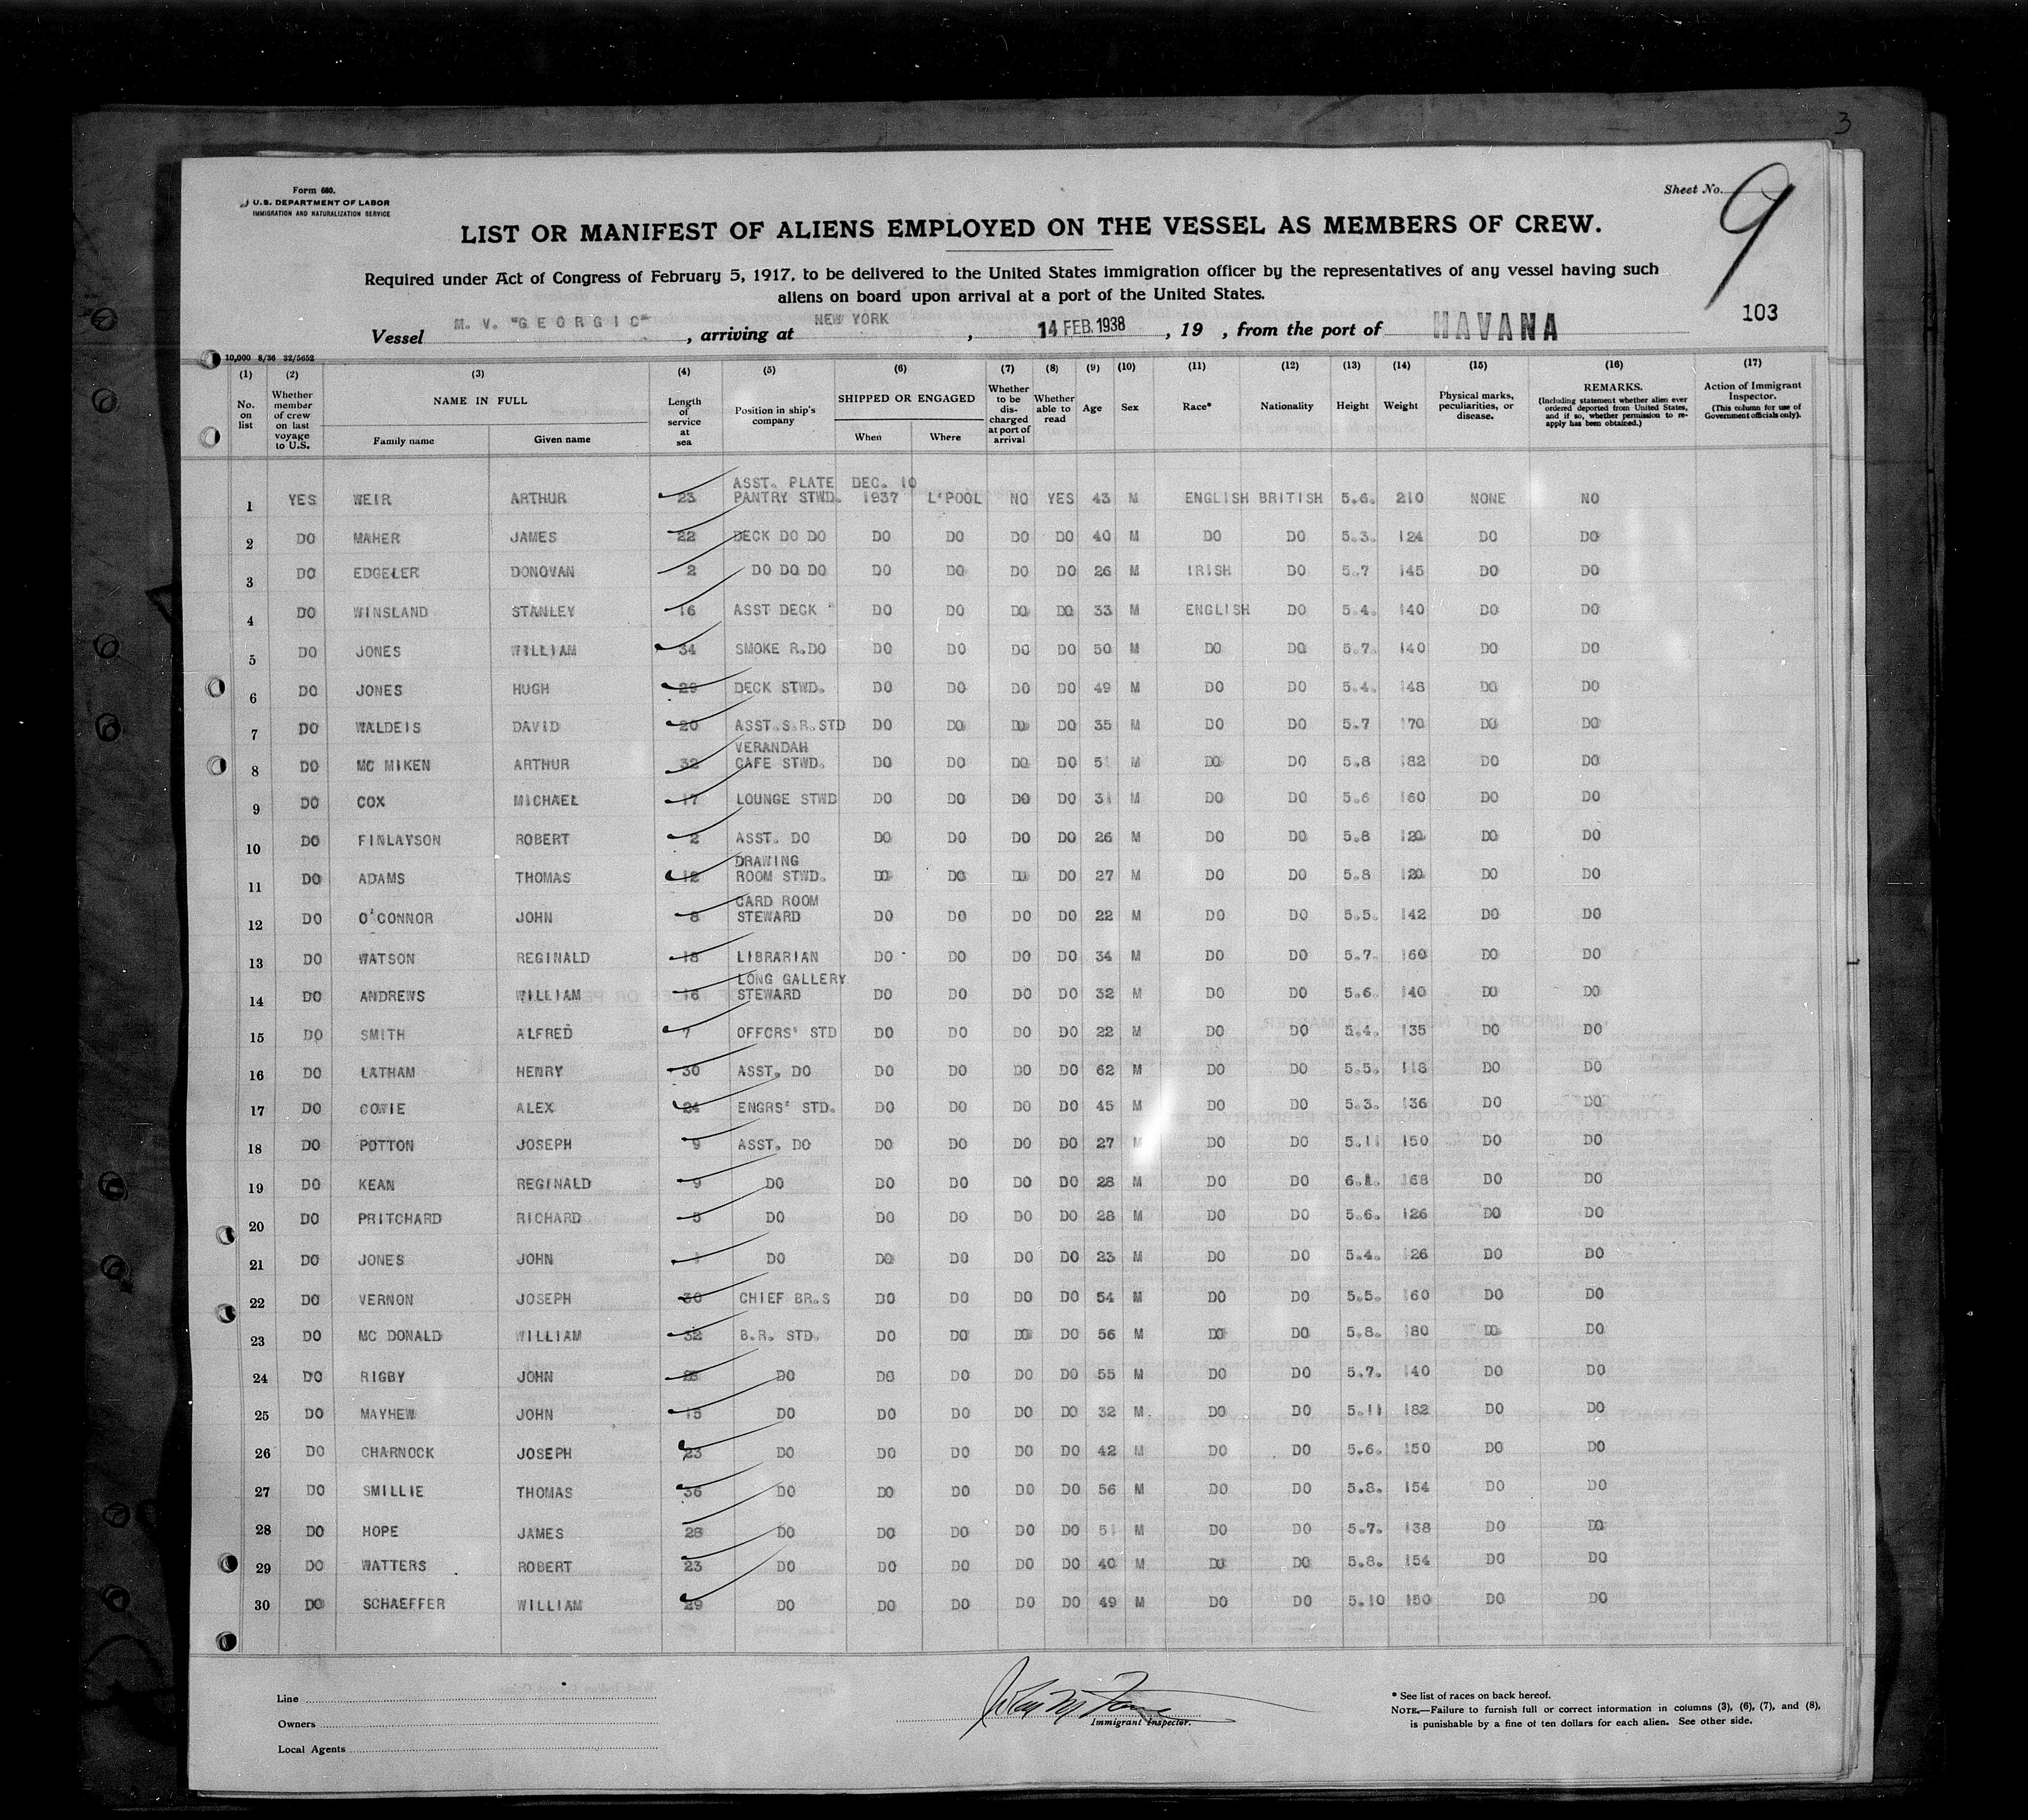 3
Form 680.
U.S. DEPARTMENT OF LABOR
IMMIGRATION AND NATURALIZATION SERVICE
Sheet No. 9
LIST OR MANIFEST OF ALIENS EMPLOYED ON THE VESSEL AS MEMBERS OF CREW.
Required under Act of Congress of February 5, 1917, to be delivered to the United States immigration officer by the representatives of any vessel having such
aliens on board upon arrival at a port of the United States.
103
Vessel M. V. "GEORGIC", arriving at NEW YORK, 14 FEB. 1938, 19 , from the port of HAVANA
10,000 8/36 32/5652
(1) (2) (3) (4) (5) (6) (7) (8) (9) (10) (11) (12) (13) (14) (15) (16) (17)
No. on list Whether member of crew on last voyage to U.S. NAME IN FULL Family name Given name Length of service at sea Position in ship's company SHIPPED OR ENGAGED When Where Whether to be discharged at port of arrival Whether able to read Age Sex Race* Nationality Height Weight Physical marks, peculiarities, or disease. REMARKS. (Including statement whether alien ever ordered deported from United States, and if so, whether permission to re-apply has been obtained.) Action of Immigrant Inspector. (This column for use of Government officials only).
1 YES WEIR ARTHUR 23 ASST. PLATE PANTRY STWD. DEC. 10 1937 L'POOL NO YES 43 M ENGLISH BRITISH 5.6. 210 NONE NO
2 DO MAHER JAMES 22 DECK DO DO DO DO DO DO 40 M DO DO 5.3. 124 DO DO
3 DO EDGELER DONOVAN 2 DO DO DO DO DO DO DO 26 M IRISH DO 5.7 145 DO DO
4 DO WINSLAND STANLEY 16 ASST DECK " DO DO DO DO 33 M ENGLISH DO 5.4. 140 DO DO
5 DO JONES WILLIAM 34 SMOKE R.DO DO DO DO DO 50 M DO DO 5.7. 140 DO DO
6 DO JONES HUGH 29 DECK STWD. DO DO DO DO 49 M DO DO 5.4. 148 DO DO
7 DO WALDEIS DAVID 20 ASST.S.R.STD DO DO DO DO 35 M DO DO 5.7 170 DO DO
8 DO MC MIKEN ARTHUR 32 VERANDAH CAFE STWD. DO DO DO DO 51 M DO DO 5.8 182 DO DO
9 DO COX MICHAEL 17 LOUNGE STWD DO DO DO DO 31 M DO DO 5.6 160 DO DO
10 DO FINLAYSON ROBERT 2 ASST. DO DO DO DO DO 26 M DO DO 5.8 120 DO DO
11 DO ADAMS THOMAS 12 DRAWING ROOM STWD. DO DO DO DO 27 M DO DO 5.8 120 DO DO
12 DO O'CONNOR JOHN 8 CARD ROOM STEWARD DO DO DO DO 22 M DO DO 5.5. 142 DO DO
13 DO WATSON REGINALD 18 LIBRARIAN DO DO DO DO 34 M DO DO 5.7. 160 DO DO
14 DO ANDREWS WILLIAM 16 LONG GALLERY STEWARD DO DO DO DO 32 M DO DO 5.6. 140 DO DO
15 DO SMITH ALFRED 7 OFFCRS' STD DO DO DO DO 22 M DO DO 5.4. 135 DO DO
16 DO LATHAM HENRY 30 ASST. DO DO DO DO DO 62 M DO DO 5.5. 118 DO DO
17 DO COWIE ALEX 24 ENGRS' STD. DO DO DO DO 45 M DO DO 5.3. 136 DO DO
18 DO POTTON JOSEPH 9 ASST. DO DO DO DO DO 27 M DO DO 5.11 150 DO DO
19 DO KEAN REGINALD 9 DO DO DO DO DO 28 M DO DO 6.1. 168 DO DO
20 DO PRITCHARD RICHARD 5 DO DO DO DO DO 28 M DO DO 5.6. 126 DO DO
21 DO JONES JOHN 1 DO DO DO DO DO 23 M DO DO 5.4. 126 DO DO
22 DO VERNON JOSEPH 30 CHIEF BR.S DO DO DO DO 54 M DO DO 5.5. 160 DO DO
23 DO MC DONALD WILLIAM 32 B.R. STD. DO DO DO DO 56 M DO DO 5.8. 180 DO DO
24 DO RIGBY JOHN DO DO DO DO DO 55 M DO DO 5.7. 140 DO DO
25 DO MAYHEW JOHN 15 DO DO DO DO DO 32 M. DO DO 5.11 182 DO DO
26 DO CHARNOCK JOSEPH 23 DO DO DO DO DO 42 M DO DO 5.6. 150 DO DO
27 DO SMILLIE THOMAS 36 DO DO DO DO DO 56 M DO DO 5.8. 154 DO DO
28 DO HOPE JAMES 28 DO DO DO DO DO 51 M DO DO 5.7. 138 DO DO
29 DO WATTERS ROBERT 23 DO DO DO DO DO 40 M DO DO 5.8. 154 DO DO
30 DO SCHAEFFER WILLIAM 29 DO DO DO DO DO 49 M DO DO 5.10 150 DO DO
Line
Owners
Local Agents
Immigrant Inspector.
* See list of races on back hereof.
NOTE.—Failure to furnish full or correct information in columns (3), (6), (7), and (8),
is punishable by a fine of ten dollars for each alien. See other side.